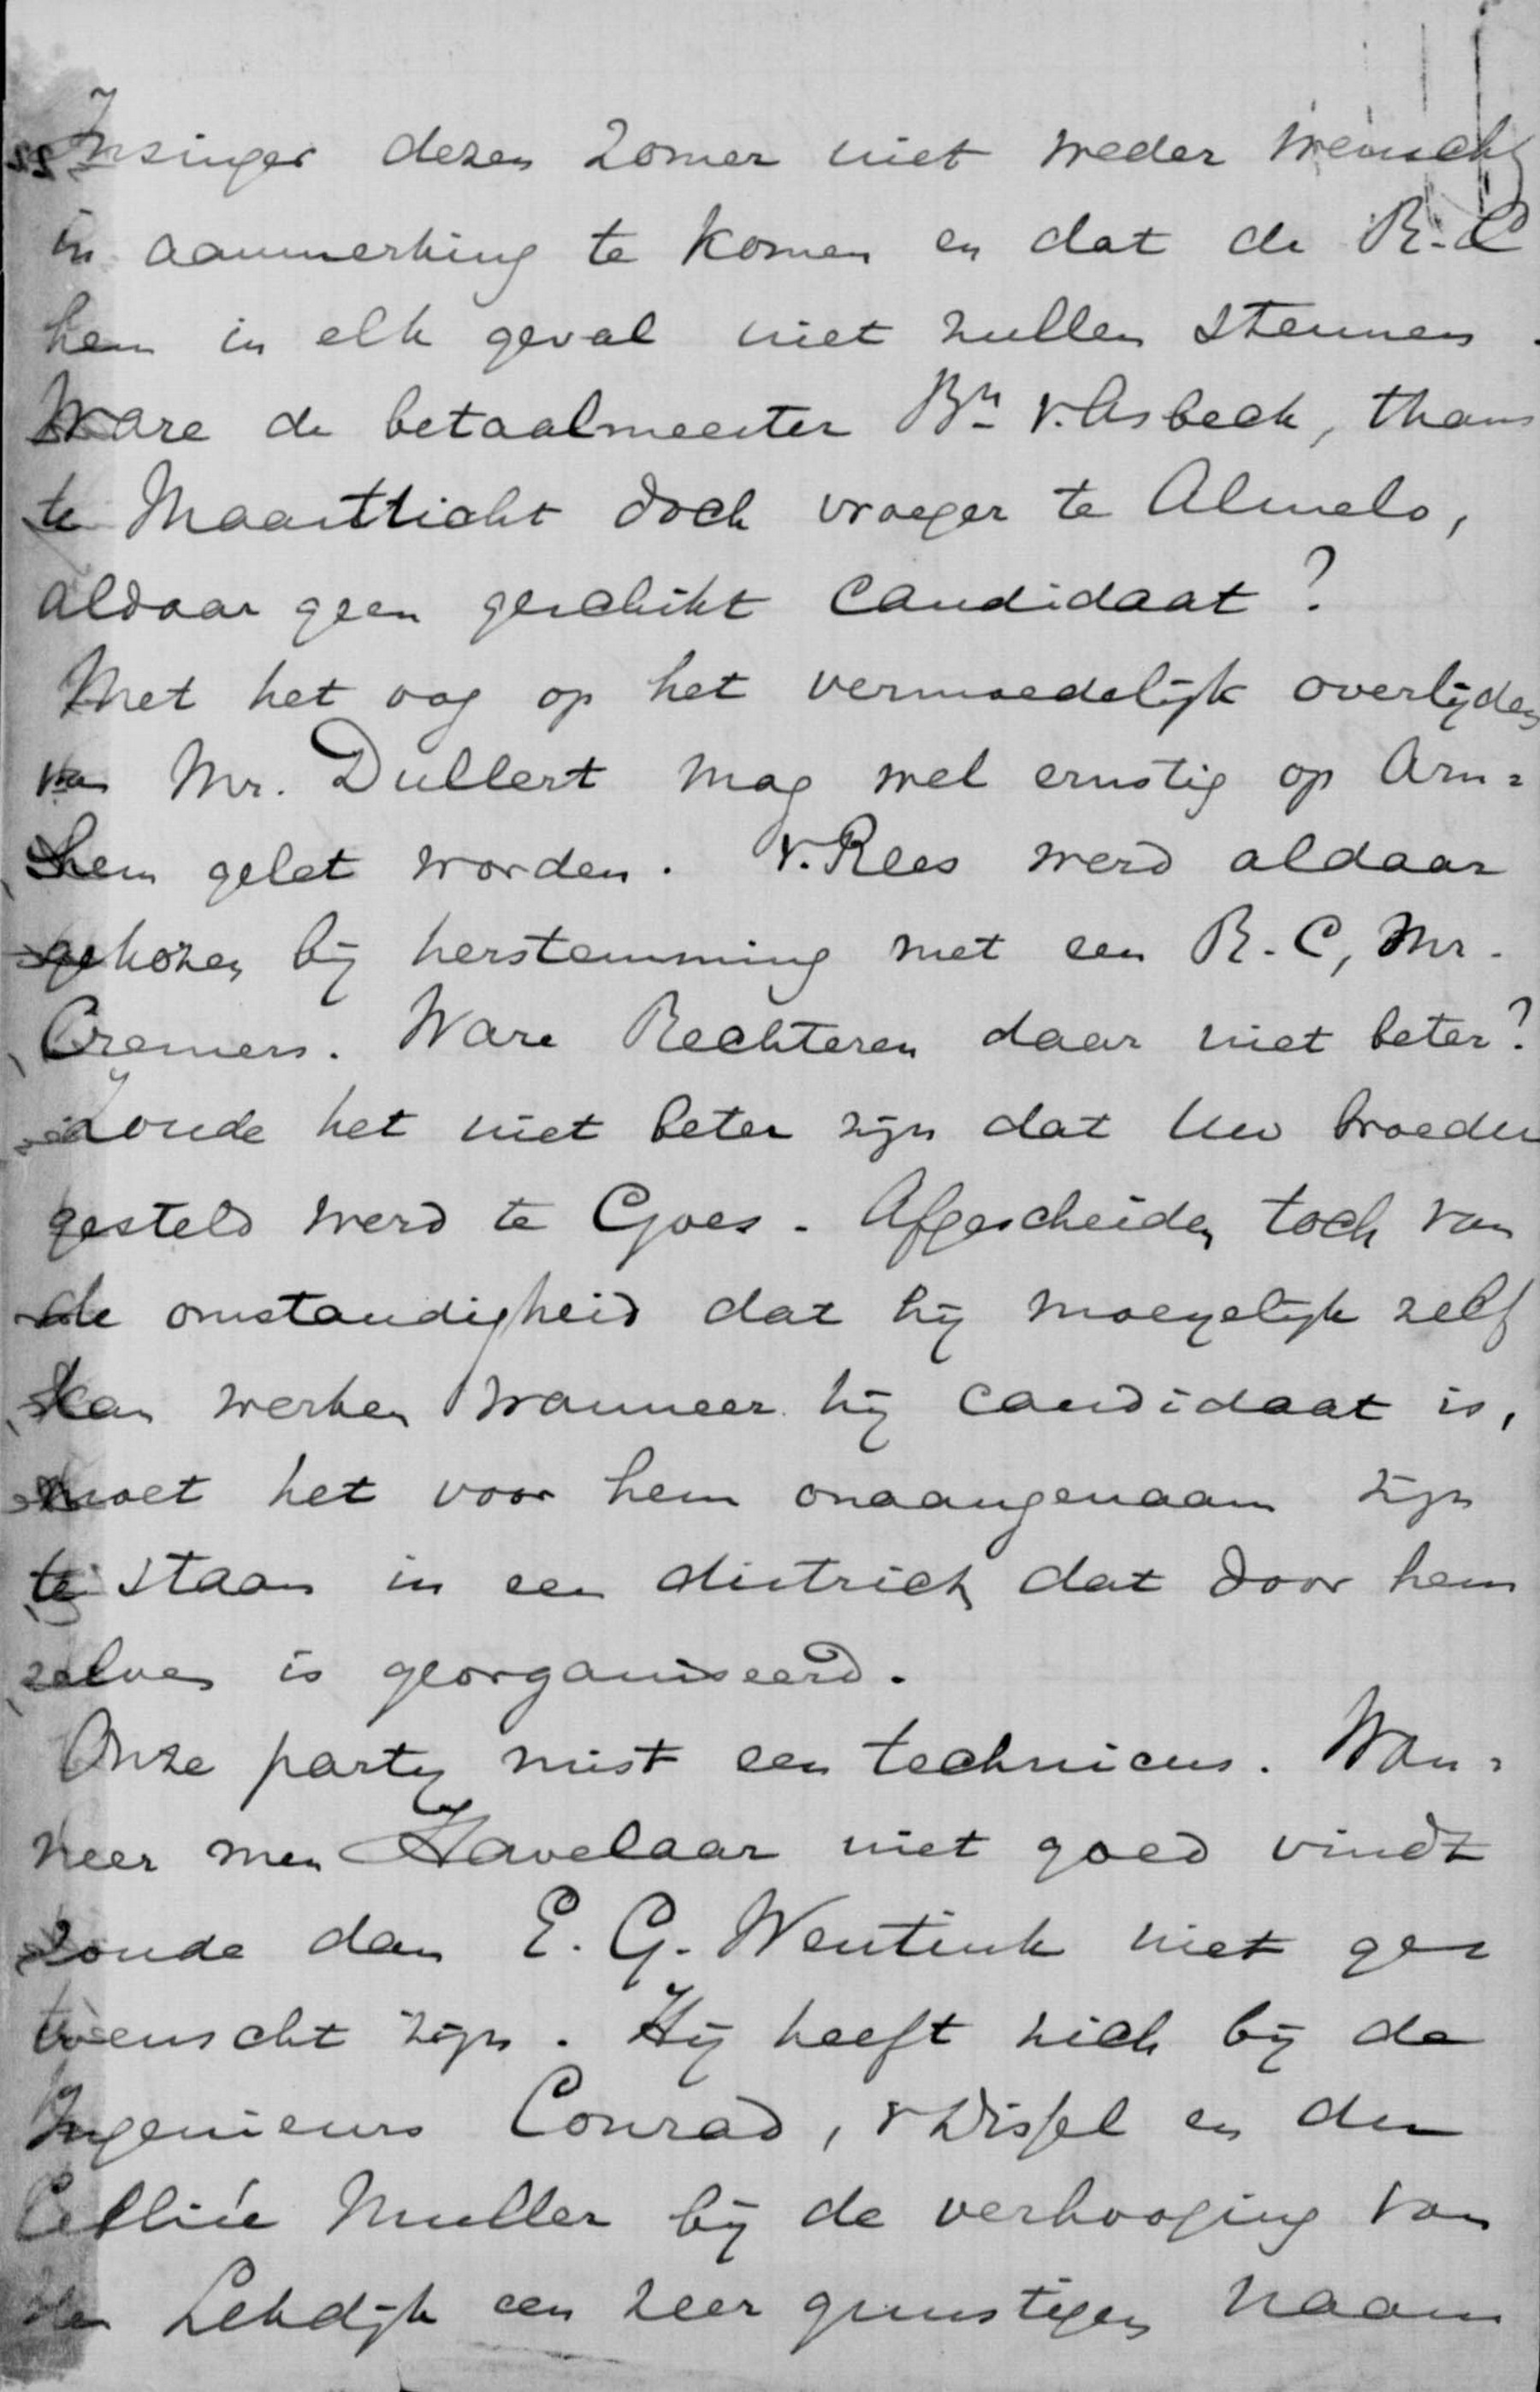 Insinger dezen zomer niet weder wenscht
in aanmerking te komen en dat de R.C
hem in elk geval niet zullen steunen.
Ware de betaalmeester Bn v. Asbeck, thans
te Maastricht doch vroeger te Almelo,
aldaar geen geschikt candidaat?
Met het oog op het vermoedelijk overlijden
van Mr. Dullert mag wel ernstig op Arn=
hem gelet worden. v. Rees werd aldaar
gekozen bij herstemming met een R.C, Mr.
Cremers. Ware Rechteren daar niet beter?
Zoude het niet beter zijn dat Uw broeder
gesteld werd te Goes. Afgescheiden toch van
de omstandigheid dat hij moeyelijk zelf
kan werken wanneer hij candidaat is,
moet het voor hem onaangenaam zijn
te staan in een district dat door hem
zelven is georganiseerd.
Onze party mist een technicus. Wan=
neer men Havelaar niet goed vindt
zoude dan E. G. Wentink niet ge=
wenscht zijn. Hij heeft zich bij de
Ingenieurs Conrad, v Dissel en den
Muller bij de verhooging van
den Lekdijk een zeer gunstigen naam